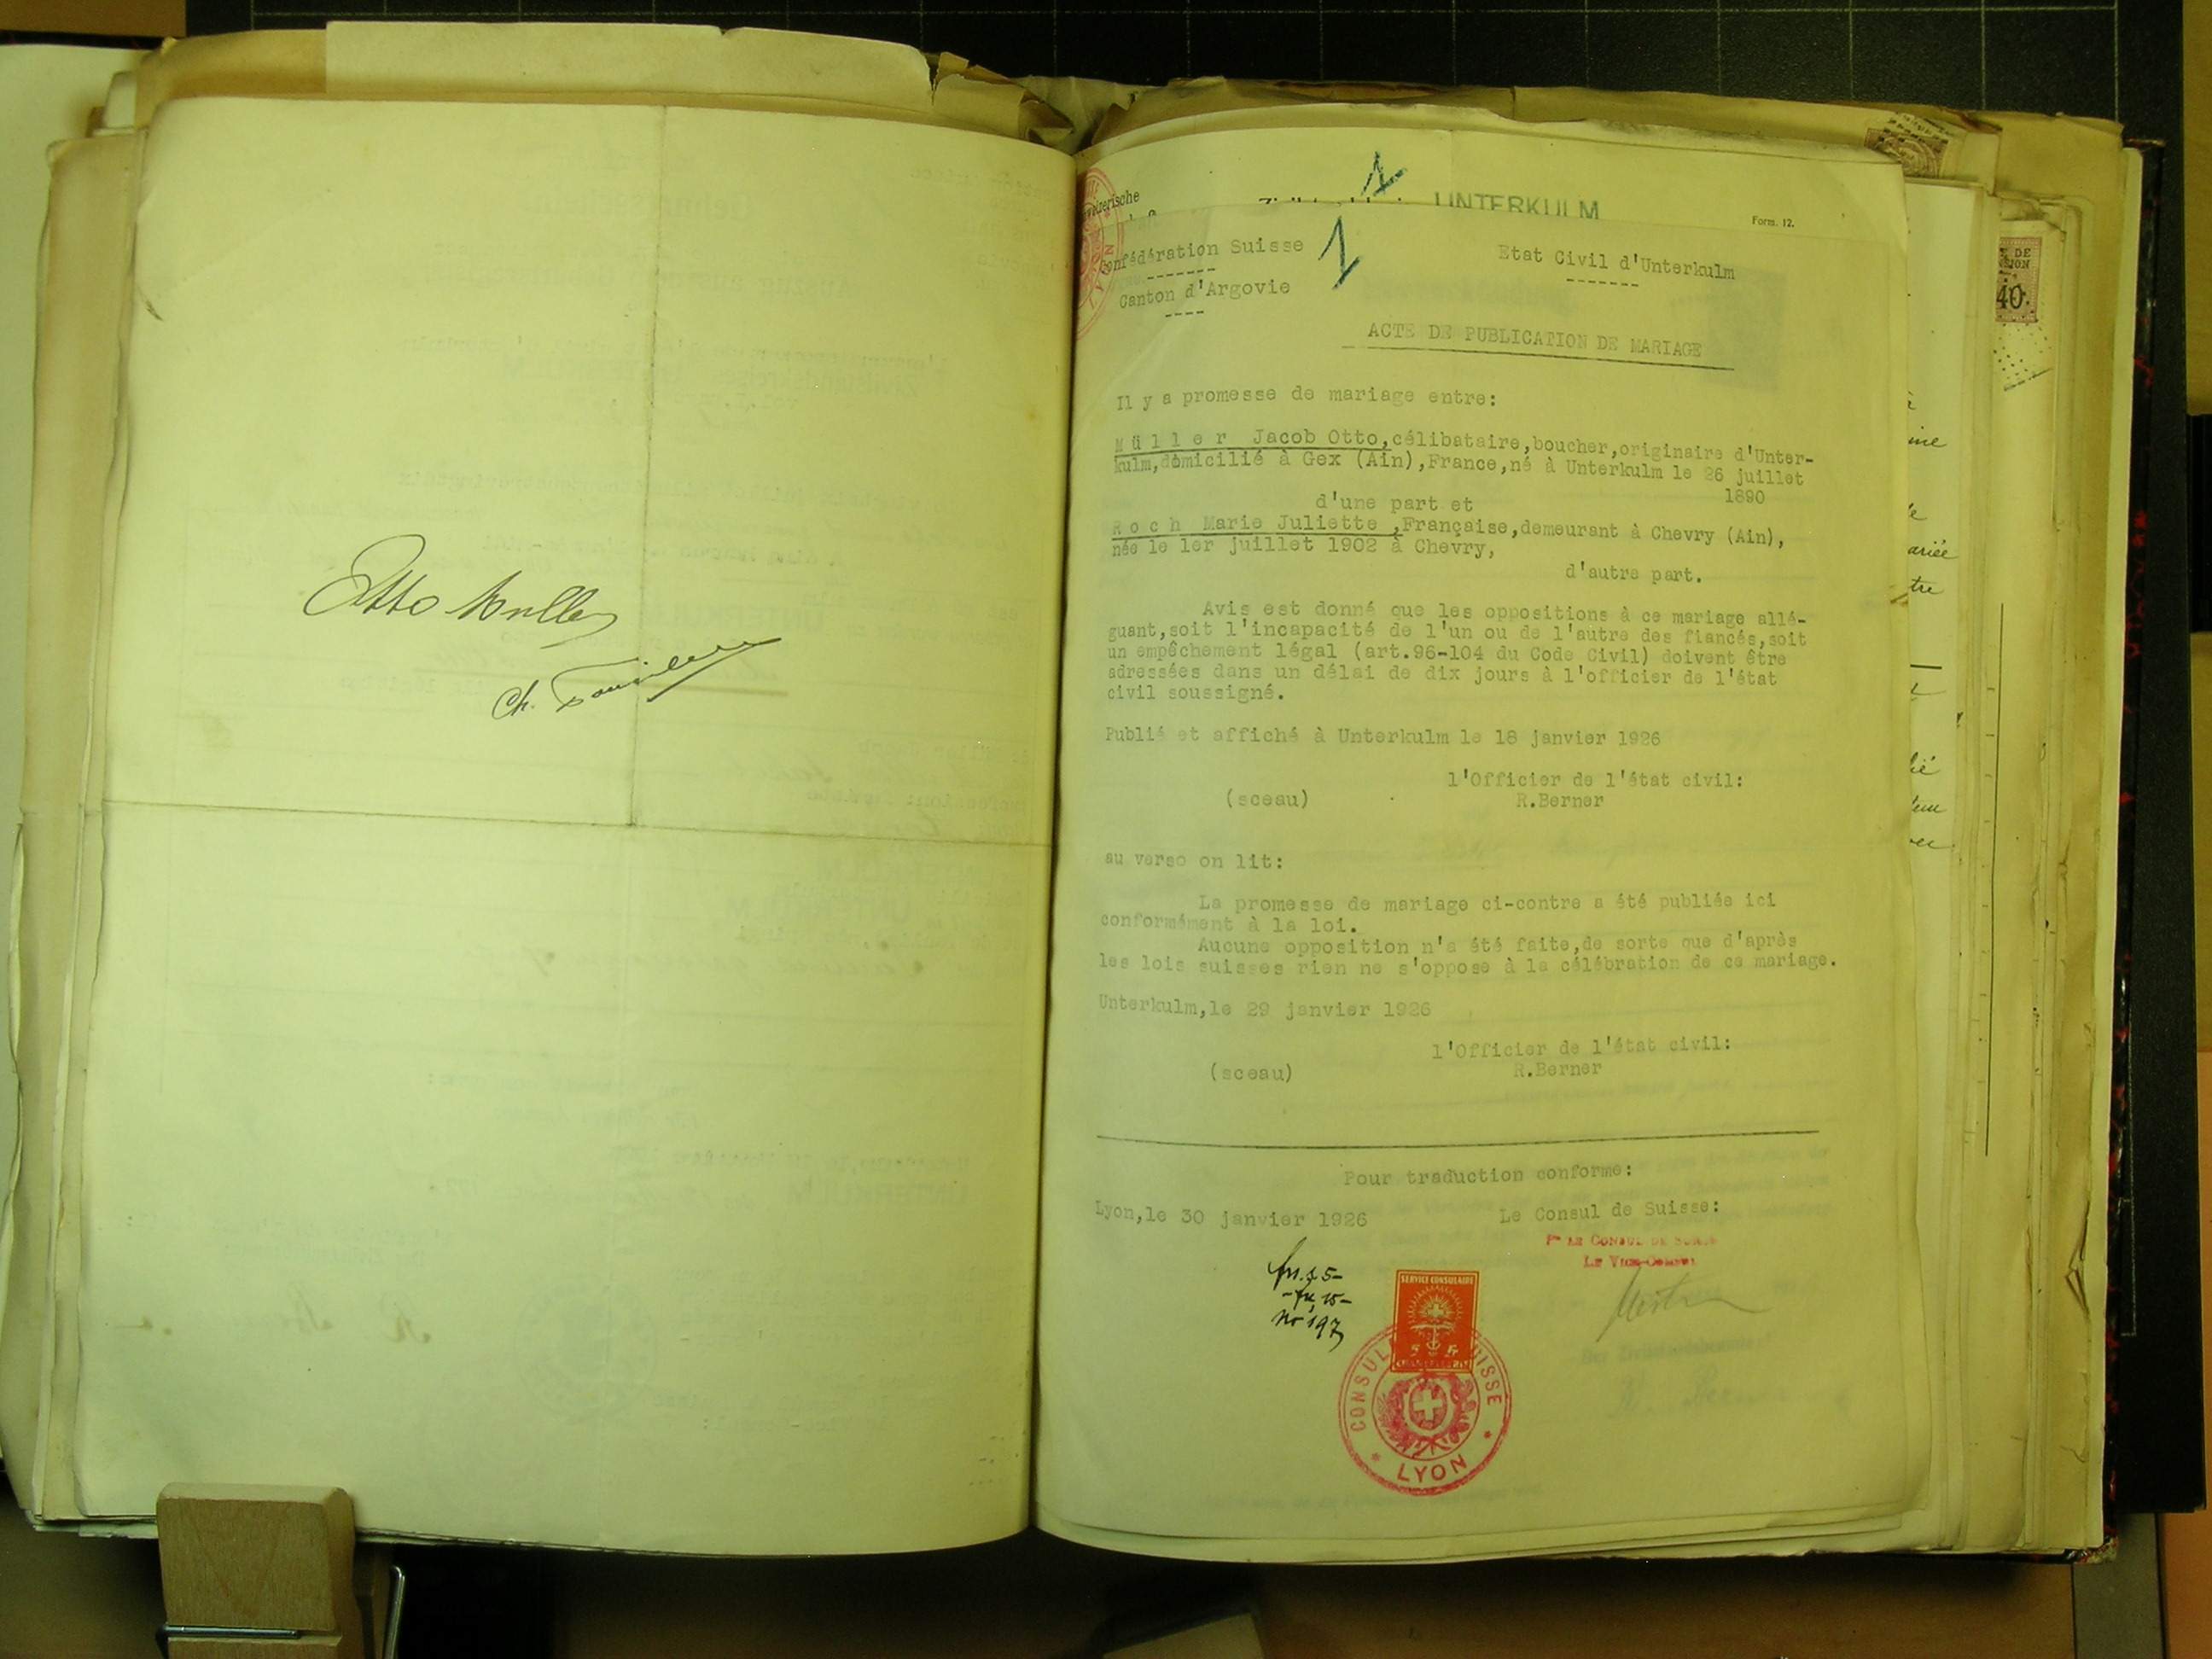 Otto Muller
Ch.
UNTERKULM
Form. 12.
Confédération Suisse
-------
Canton d'Argovie
----
1
Etat Civil d'Unterkulm
-------
ACTE DE PUBLICATION DE MARIAGE
Il y a promesse de mariage entre:
Müller Jacob Otto,célibataire,boucher,originaire d'Unter-
kulm,domicilié à Gex (Ain),France,né à Unterkulm le 26 juillet
1890
d'une part et
Roch Marie Juliette ,Française,demeurant à Chevry (Ain),
née le 1er juillet 1902 à Chevry,
d'autre part.
Avis est donné que les oppositions à ce mariage allé-
guant,soit l'incapacité de l'un ou de l'autre des fiancés,soit
un empêchement légal (art.96-104 du Code Civil) doivent être
adressées dans un délai de dix jours à l'officier de l'état
civil soussigné.
Publié et affiché à Unterkulm le 18 janvier 1926
l'Officier de l'état civil:
(sceau) R.Berner
au verso on lit:
La promesse de mariage ci-contre a été publiée ici
conformément à la loi.
Aucune opposition n'a été faite,de sorte que d'après
les lois suisses rien ne s'oppose à la célébration de ce mariage.
Unterkulm,le 29 janvier 1926
l'Officier de l'état civil:
(sceau) R.Berner
Pour traduction conforme:
Lyon,le 30 janvier 1926 Le Consul de Suisse:
Pr LE CONSUL DE SUISSE
LE VICE-CONSUL
No 197
SERVICE CONSULAIRE
5 fr
CONSULAT SUISSE
LYON
40